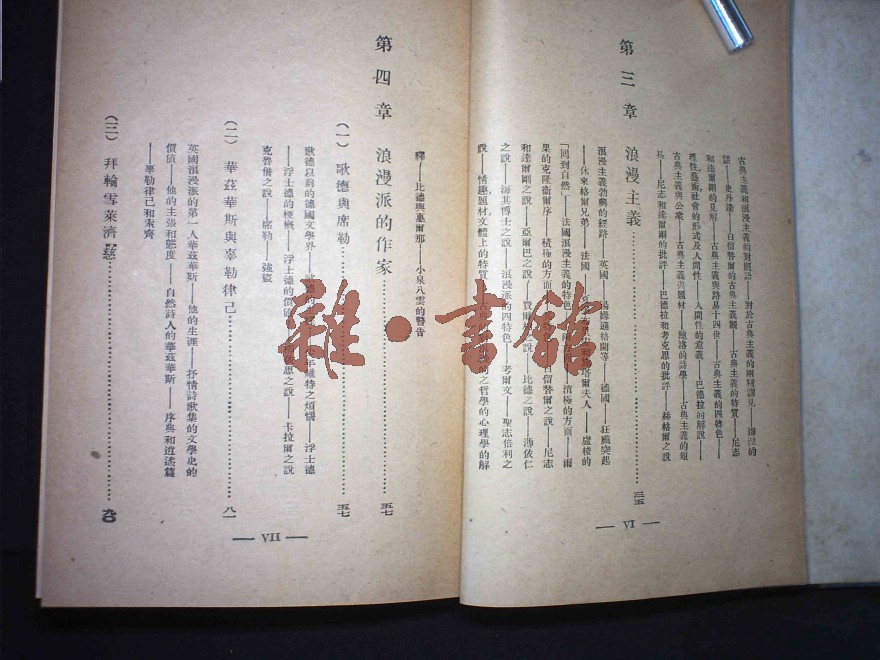 古典主義和浪漫主義的對照語——對於古典主義的兩種謬見——海涅的
話——史丹達——白留替爾的古典主義觀——古典主義的特質——尼志
和達爾剛的見解——古典主義與路易十四世——古典主義的四特色——
理性藝術社會的形式及人間性——人間性的意義——巴德拉的解說——
古典主義與公衆——古典主義與題材——鮑洛的詩學——古典主義的短
長——尼志和達爾剛的批評——巴德拉和考克思的批評——赫格爾之說
第三章 浪漫主義 三五
浪漫主義勃興的經路——英國——楊綠遜格蘭等——德國——狂飆突起
——休來格爾兄弟——法國
塔爾夫人——盧梭的
「回到自然」——法國浪漫主義的特色
消極的方面——雨
果的克隆衛爾序——積極的方面
白留替爾之說——尼志
和達爾剛之說——亞爾巴之說——費爾
之說——比德之說——沛依仁
之說——海其博士之說——浪漫派的四特色——考爾文——聖志倍利之
說——情趣題材文體上的特質
之哲學的心理學的解
— VI —
釋——比德與惠爾那——小泉八雲的警告
第四章 浪漫派的作家 五七
(一)歌德與席勒 五七
歌德以前的德國文學界
年維特之煩惱——浮士德
——浮士德的梗槪——浮士德的價值
依思之說——卡拉爾之說
克魯僧之說——席勒——強盜
(二)華茲華斯與辜勒律己 八一
英國浪漫派的第一人華茲華斯——他的生涯——抒情詩歌集的文學史的
價值——他的主張和態度——自然詩人的華茲華斯——序與和逍遙篇
——辜勒律己和索齊
(三)拜輪雪萊濟慈 九〇
— VII —
雜·書館